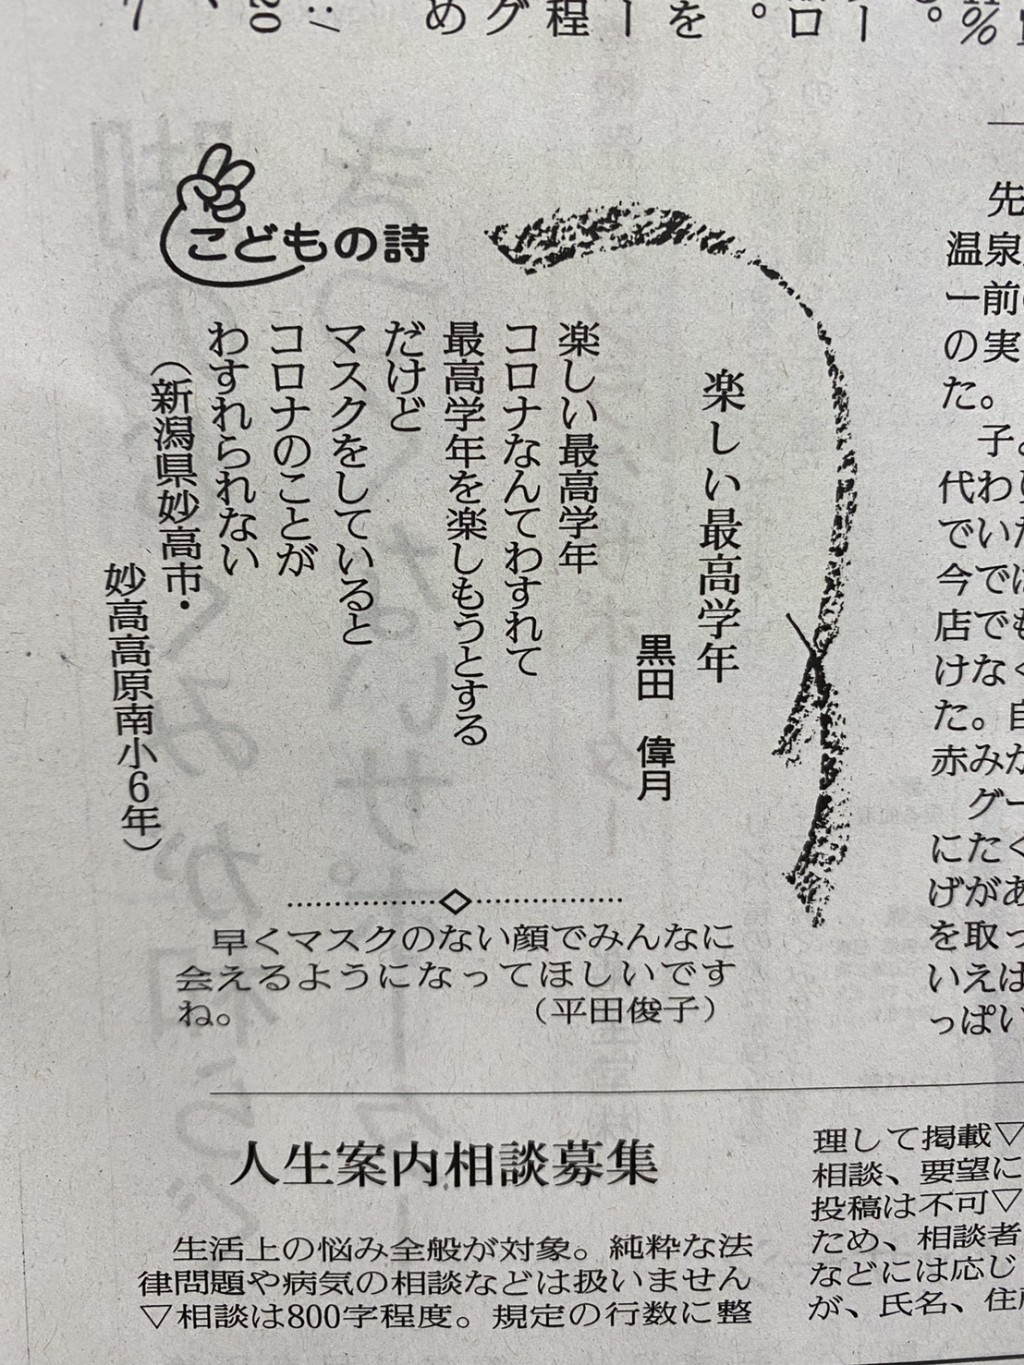 こどもの詩
楽しい最高学年
黒田 偉月
楽しい最高学年
コロナなんてわすれて
最高学年を楽しもうとする
だけど
マスクをしていると
コロナのことが
わすれられない
（新潟県妙高市・
妙高高原南小6年）
早くマスクのない顔でみんなに
会えるようになってほしいです
ね。　（平田俊子）
人生案内相談募集
生活上の悩み全般が対象。純粋な法
律問題や病気の相談などは扱いません
▽相談は800字程度。規定の行数に整
理して掲載▽
相談、要望に
投稿は不可▽
ため、相談者
などには応じ
が、氏名、住
先
温泉
ー前
の実
た。
子
代わ
でい
今で
店でも
けなく
た。
赤みが
グー
にたく
げがあ
を取っ
いえば
っぱい